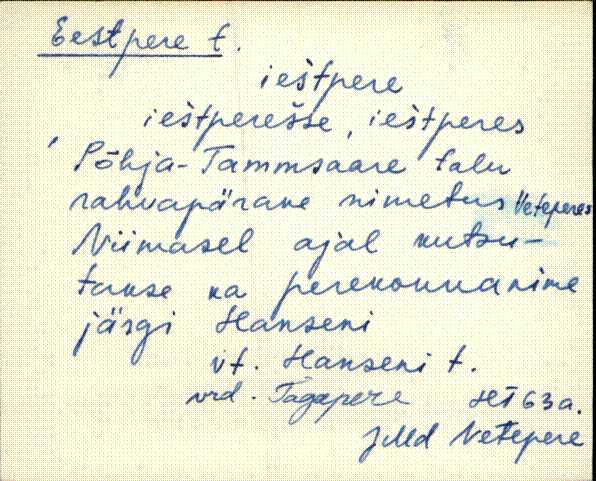 Eestpere t.
iestpere
iestperesse, iestperes
Põhja-Tammsaare talu
rahvapärane nimetus Vetepere
Viimasel ajal kutsu-
takse ka perekonnanime
järgi Hanseni
vt. Hanseni t.
vrd. Tagapere
JMd Vetepere